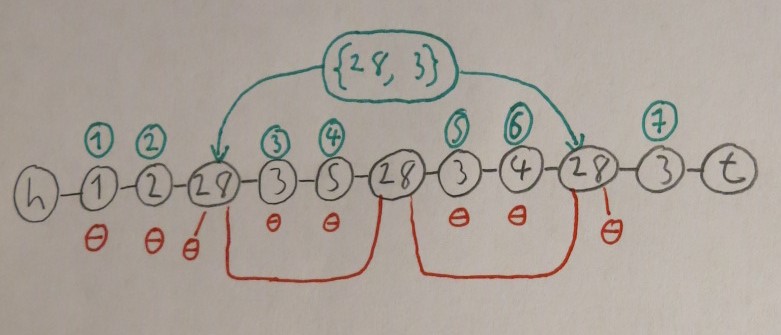 {28, 3}
1 2 3 4 5 6 7
h 1 2 28 3 5 28 3 4 28 3 t
θ θ θ θ θ θ θ θ